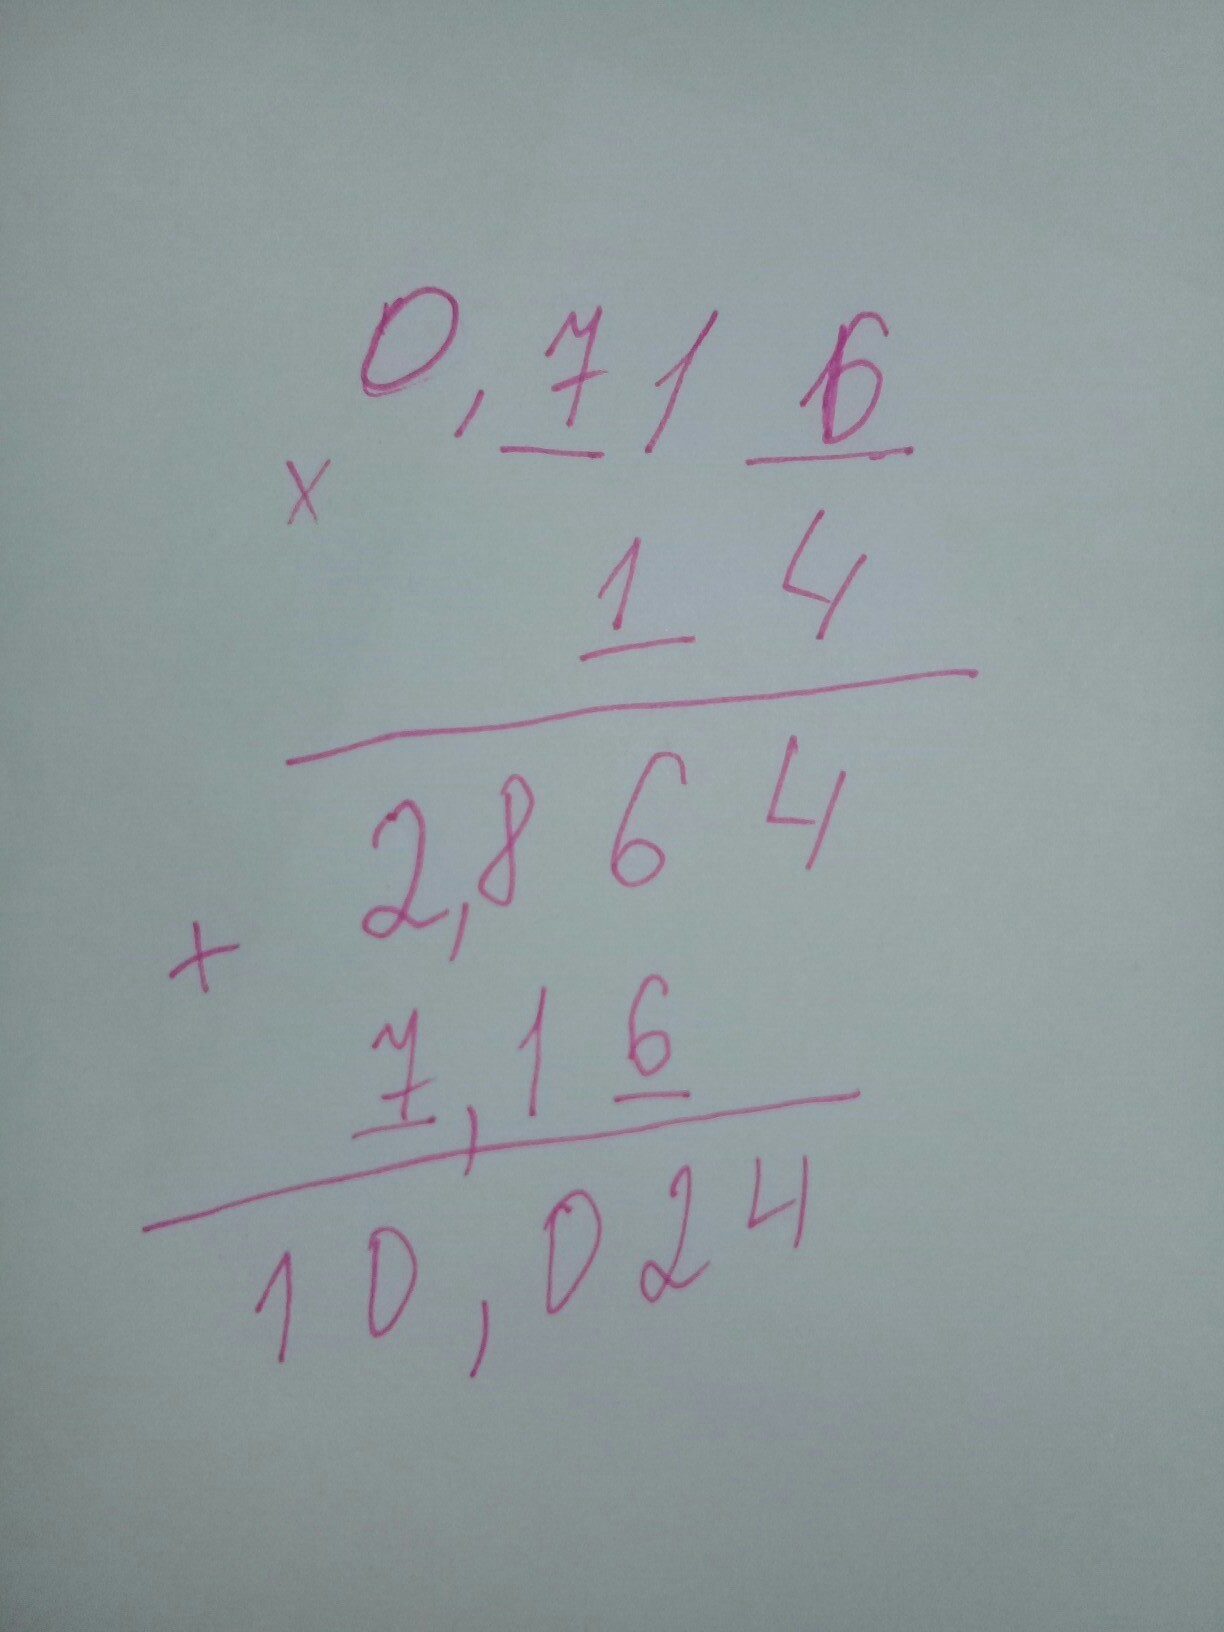 0,716
x
14
2,864
+
7,16
10,024